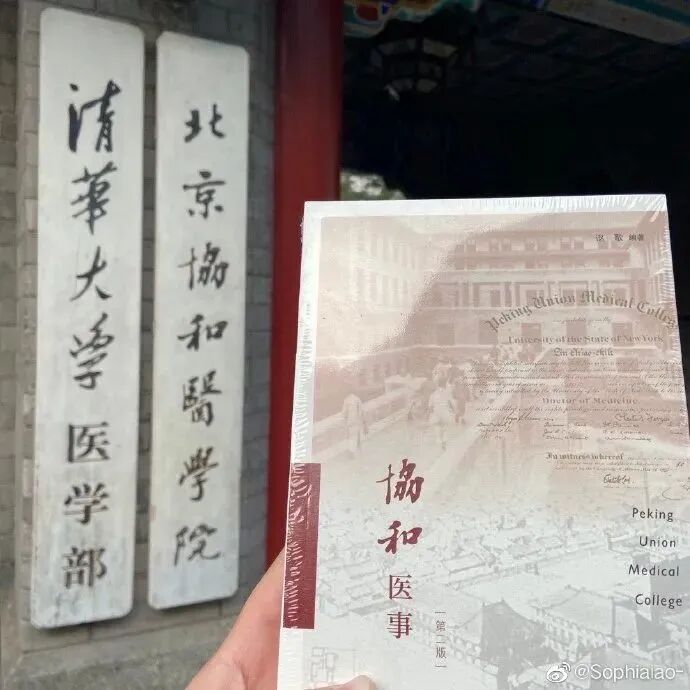 清華大学医学部
北京協和醫學院
讴歌 编著
Peking Union Medical College
University of the State of New York
Lin Chiao-chih
Doctor of Medicine
In witness whereof
協和医事
第二版
Peking
Union
Medical
College
@Sophialao-